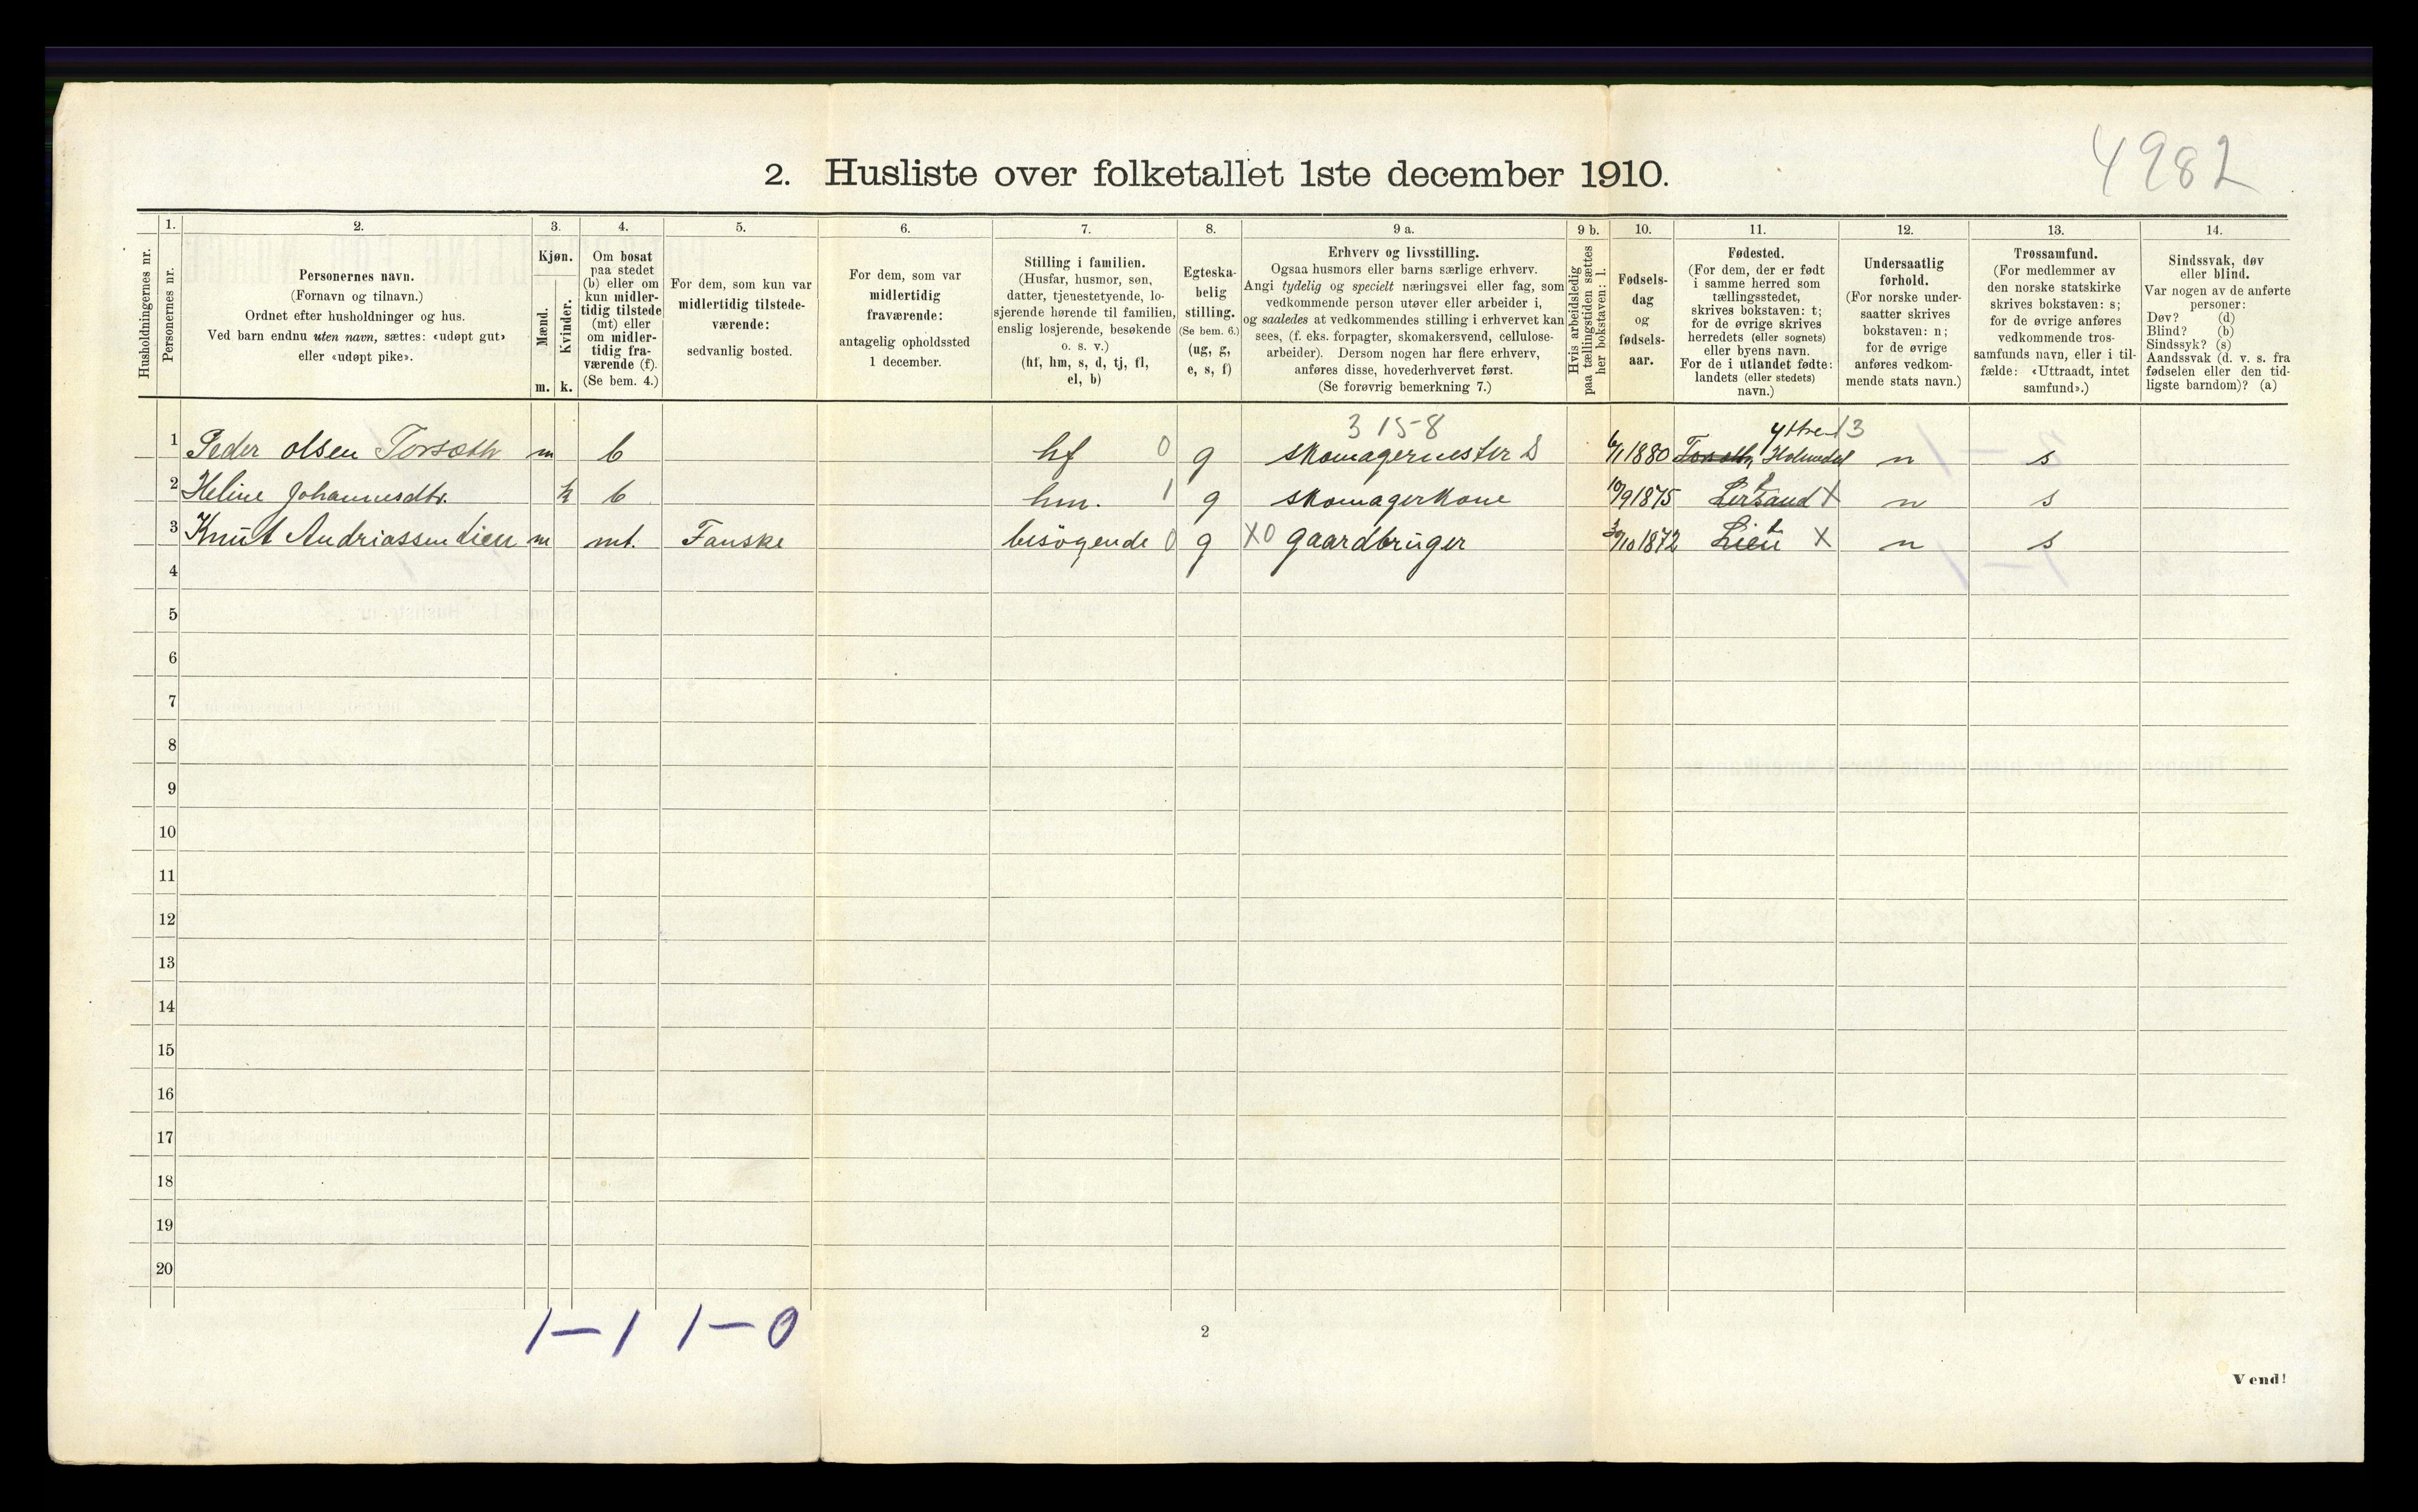 4982
2. Husliste over folketallet 1ste december 1910.
Husholdningernes nr.
1.
Personernes nr.
2.
Personernes navn.
(Fornavn og tilnavn.)
Ordnet efter husholdninger og hus.
Ved barn endnu uten navn, sættes: «udøpt gut»
eller «udøpt pike».
3.
Kjøn.
Mænd.
Kvinder.
m. k.
4.
Om bosat
paa stedet
(b) eller om
kun midler-
tidig tilstede
(mt) eller
om midler-
tidig fra-
værende (f).
(Se bem. 4.)
5.
For dem, som kun var
midlertidig tilstede-
værende:
sedvanlig bosted.
6.
For dem, som var
midlertidig
fraværende:
antagelig opholdssted
1 december.
7.
Stilling i familien.
(Husfar, husmor, søn,
datter, tjenestetyende, lo-
sjerende hørende til familien,
enslig losjerende, besøkende
o. s. v.)
(hf, hm, s, d, tj, fl,
el, b)
8.
Egteska-
belig
stilling.
(Se bem. 6.)
(ug, g,
e, s, f)
9 a.
Erhverv og livsstilling.
Ogsaa husmors eller barns særlige erhverv.
Angi tydelig og specielt næringsvei eller fag, som
vedkommende person utøver eller arbeider i,
og saaledes at vedkommendes stilling i erhvervet kan
sees, (f. eks. forpagter, skomakersvend, cellulose-
arbeider). Dersom nogen har flere erhverv,
anføres disse, hovederhvervet først.
(Se forøvrig bemerkning 7.)
9 b.
Hvis arbeidsledig
paa tællingstiden sættes
her bokstaven: l.
10.
Fødsels-
dag
og
fødsels-
aar.
11.
Fødested.
(For dem, der er født
i samme herred som
tællingsstedet,
skrives bokstaven: t;
for de øvrige skrives
herredets (eller sognets)
eller byens navn.
For de i utlandet fødte:
landets (eller stedets)
navn.)
12.
Undersaatlig
forhold.
(For norske under-
saatter skrives
bokstaven: n;
for de øvrige
anføres vedkom-
mende stats navn.)
13.
Trossamfund.
(For medlemmer av
den norske statskirke
skrives bokstaven: s;
for de øvrige anføres
vedkommende tros-
samfunds navn, eller i til-
fælde: «Uttraadt, intet
samfund».)
14.
Sindssvak, døv
eller blind.
Var nogen av de anførte
personer:
Døv? (d)
Blind? (b)
Sindssyk? (s)
Aandssvak (d. v. s. fra
fødselen eller den tid-
ligste barndom)? (a)
3 15-8
1 Peder olsen Torsæth m b hf 0 g skomagermester S 6/1 1880 Holmedal n s
2 Heline Johannesdtr. k b hm. 1 g skomagerkone 10/9 1875 t X n s
3 Knut Andriassen Lien m mt. Fauske besögende 0 g XO gaardbruger 3/10 1872 Lien t X n s
4
5
6
7
8
9
10
11
12
13
14
15
16
17
18
19
20
1-1 1-0
2
Vend!